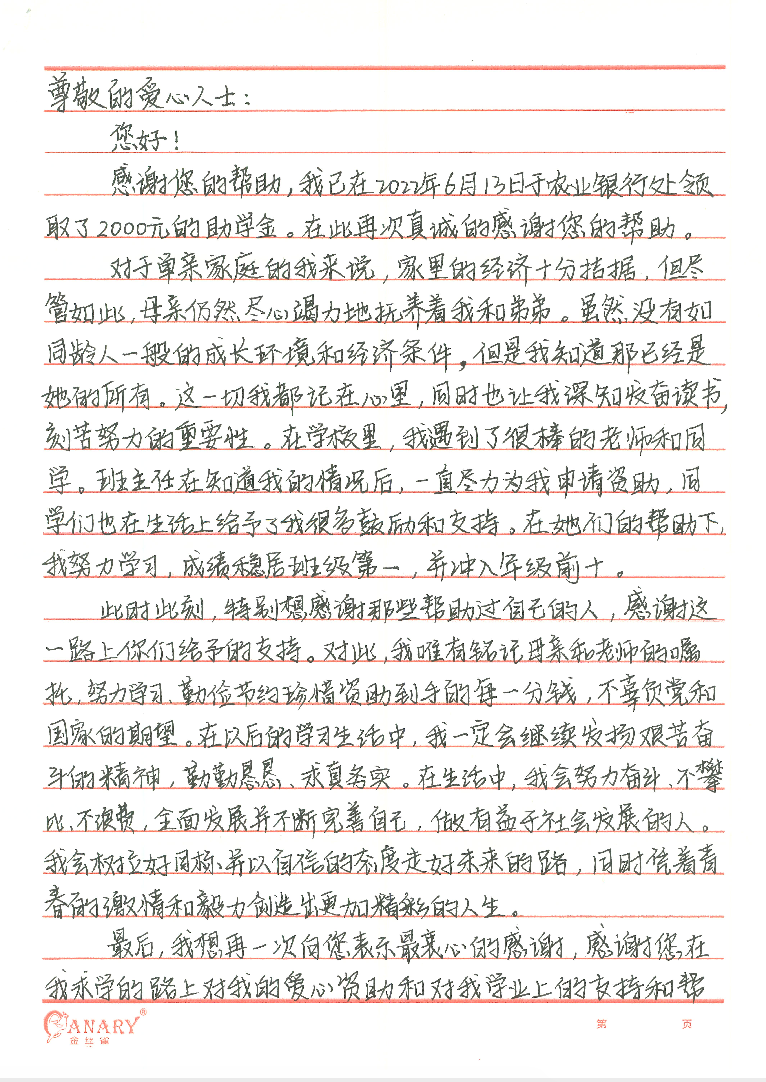 尊敬的爱心人士：
您好！
感谢您的帮助，我已在2022年6月13日于农业银行处领
取了2000元的助学金。在此再次真诚的感谢您的帮助。
对于单亲家庭的我来说，家里的经济十分拮据，但尽
管如此，母亲仍然尽心竭力地抚养着我和弟弟。虽然没有如
同龄人一般的成长环境和经济条件，但是我知道那已经是
她的所有。这一切我都记在心里，同时也让我深知发奋读书，
刻苦努力的重要性。在学校里，我遇到了很棒的老师和同
学。班主任在知道我的情况后，一直尽力为我申请资助，同
学们也在生活上给予了我很多鼓励和支持。在她们的帮助下，
我努力学习，成绩稳居班级第一，并冲入年级前十。
此时此刻，特别想感谢那些帮助过自己的人，感谢这
一路上你们给予的支持。对此，我唯有铭记母亲和老师的嘱
托，努力学习、勤俭节约珍惜资助到手的每一分钱，不辜负党和
国家的期望。在以后的学习生活中，我一定会继续发扬艰苦奋
斗的精神，勤勤恳恳、求真务实。在生活中，我会努力奋斗、不攀
比、不浪费，全面发展并不断完善自己，做有益于社会发展的人。
我会树立好目标并以自信的态度走好未来的路，同时凭着青
春的激情和毅力创造出更加精彩的人生。
最后，我想再一次向您表示最衷心的感谢，感谢您在
我求学的路上对我的爱心资助和对我学业上的支持和帮
CANARY®
金丝雀
第 页